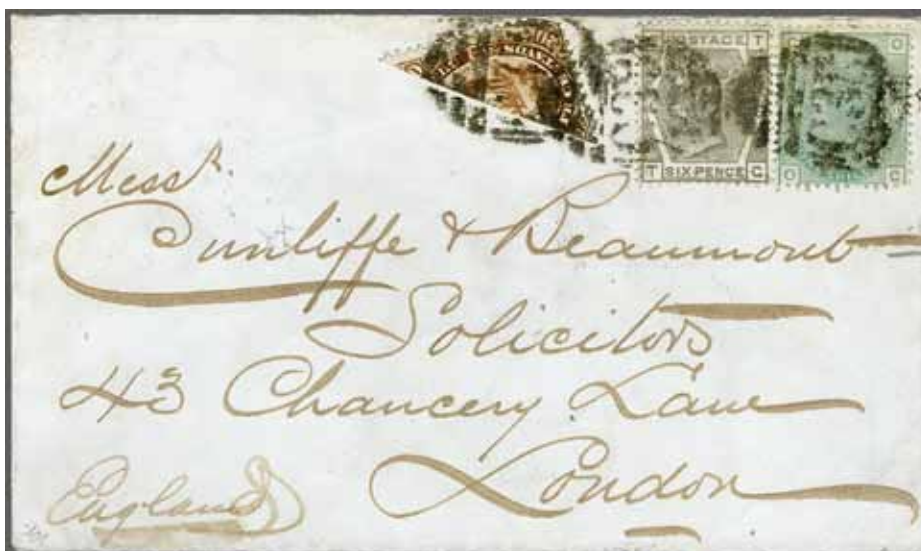 POSTAGE T
O
T SIX PENCE C
O C
Messrs
Cunliffe & Beaumont
Solicitors
43 Chancery Lane
London
England